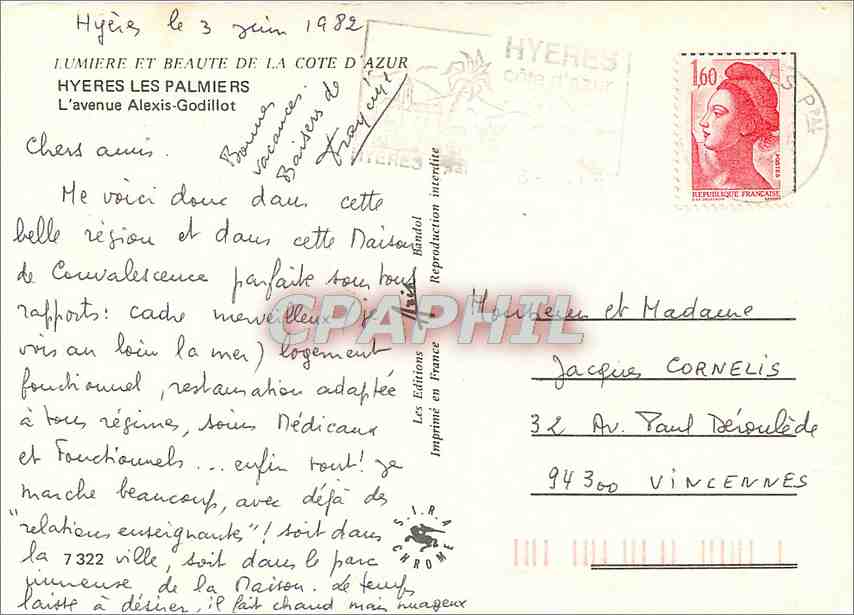 Hyères le 3 juin 1982
LUMIERE ET BEAUTE DE LA COTE D'AZUR
HYERES LES PALMIERS
L'avenue Alexis-Godillot
Chers amis.
Me voici donc dans cette
belle région et dans cette Maison
de Convalescence parfaite sous tous
rapports: cadre merveilleux (je
vois au loin la mer) logement
fonctionnel, restauration adaptée
à tous régimes, soins Médicaux
et Fonctionnels... enfin tout! Je
marche beaucoup, avec déjà des
"relations enseignantes"! soit dans
la 7322 ville, soit dans le parc
immense de la Maison. Le temps
laisse à désirer, il fait chaud mais nuageux
Bonnes
vacances.
Baisers de
HYERES
côte d'azur
HYERES
1,60
POSTES
REPUBLIQUE FRANÇAISE
PPAL
Les Editions Bandol
Imprimé en France Reproduction interdite
S.I.R.A.
CHROME
CPAPHIL
Monsieur et Madame
Jacques CORNELIS
32 Av. Paul Déroulède
94300 VINCENNES